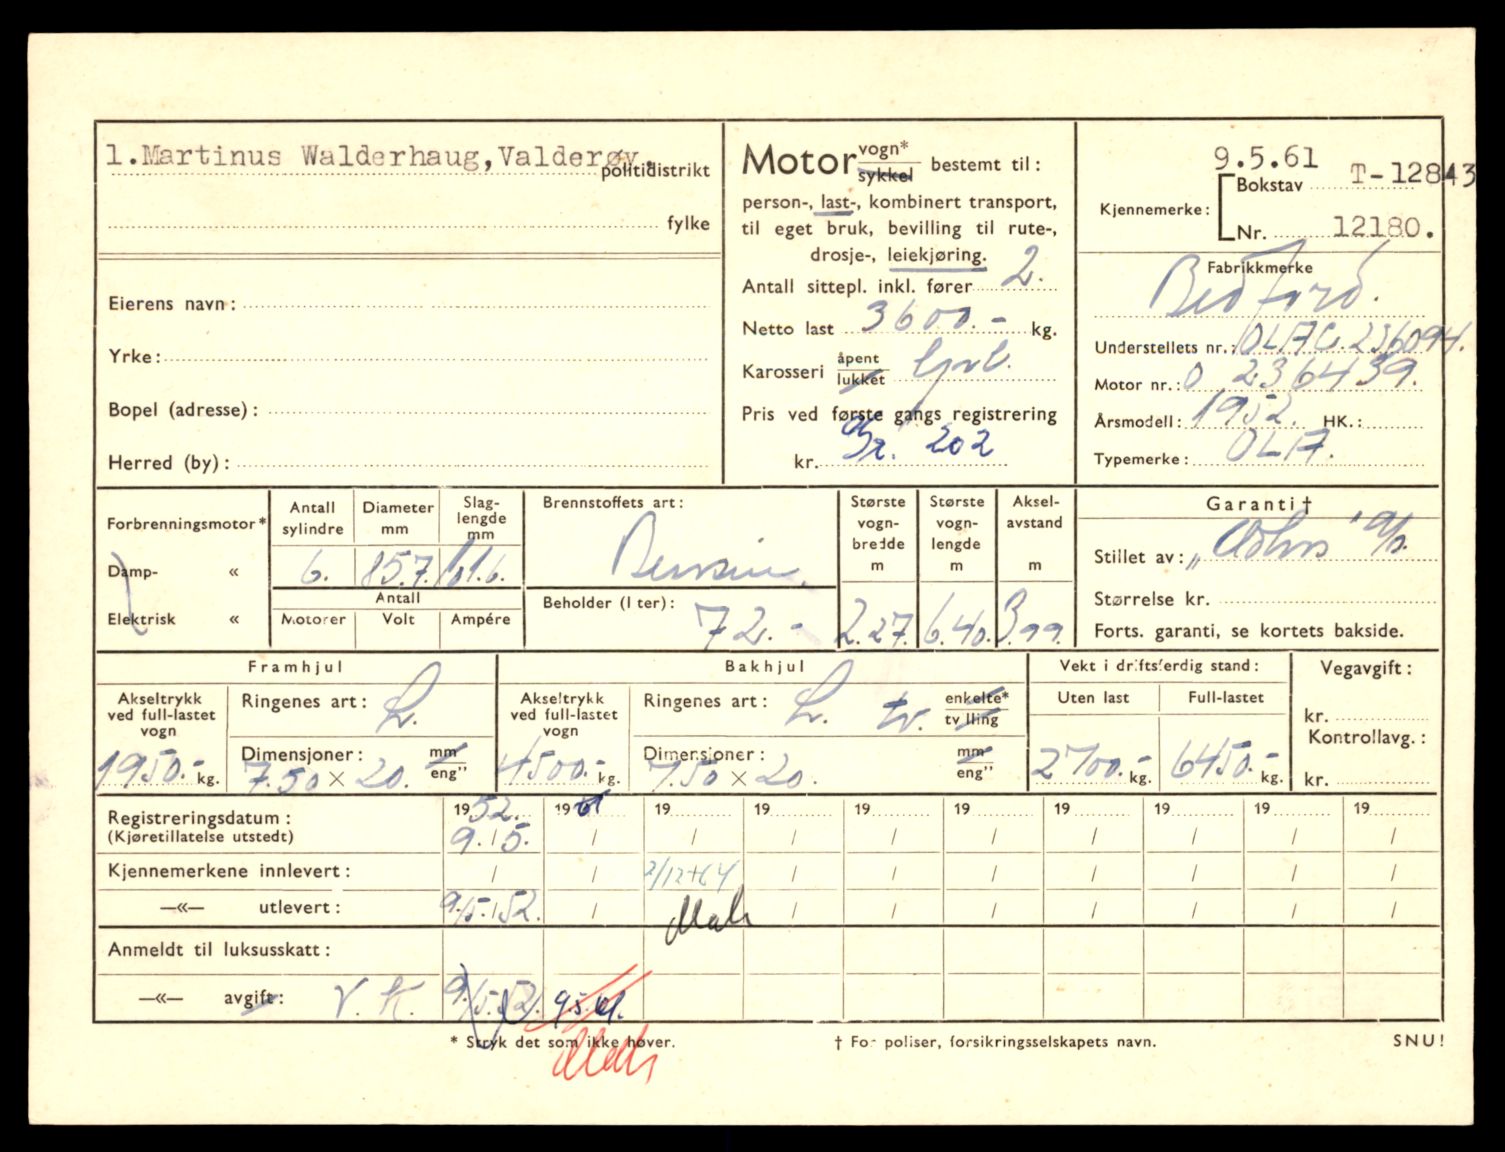 1.Martinus Walderhaug,Valderøy.
politidistrikt
fylke
Eierens navn:
Yrke:
Bopel (adresse):
Herred (by):
Motor vogn* sykkel bestemt til:
person-, last-, kombinert transport,
til eget bruk, bevilling til rute-,
drosje-, leiekjøring.
Antall sittepl. inkl. fører 2.
Netto last 3600.- kg.
Karosseri åpent lukket
Pris ved første gangs registrering
kr. 202
9.5.61
Kjennemerke: Bokstav T-12843
Nr. 12180.
Fabrikkmerke
Bedford.
Understellets nr.: OLAC.236094.
Motor nr.: O 236439.
Årsmodell: 1952. HK.:
Typemerke: OLA.
Forbrenningsmotor*
Damp- «
Elektrisk «
Antall sylindre 6.
Diameter mm 85.7.
Slaglengde mm 101.6.
Antall
Motorer Volt Ampére
Brennstoffets art:
Bensin.
Beholder (liter): 72.-
Største vognbredde m 2.27.
Største vognlengde m 6.40.
Akselavstand m 3.99.
Garanti†
Stillet av:
Størrelse kr.
Forts. garanti, se kortets bakside.
Framhjul
Akseltrykk ved full-lastet vogn 1950.- kg.
Ringenes art: L.
Dimensjoner: mm eng" 7.50 × 20.
Bakhjul
Akseltrykk ved full-lastet vogn 4500.- kg.
Ringenes art: L. tv. enkelte* tvilling
Dimensjoner: mm eng" 7.50 × 20.
Vekt i driftsferdig stand:
Uten last 2700.- kg.
Full-lastet 6450.- kg.
Vegavgift:
kr.
Kontrollavg.:
kr.
Registreringsdatum: 1952. 1961 19 19 19 19 19 19 19 19
(Kjøretillatelse utstedt) 9./5. / / / / / / / / /
Kjennemerkene innlevert: / / 2/12-64 / / / / / / /
—«— utlevert: 9./5.52. / / / / / / / /
Anmeldt til luksusskatt:
—«— avgift: V. K. 9./5.52. 9.5.61.
* Stryk det som ikke høver.
† For poliser, forsikringsselskapets navn.
SNU!